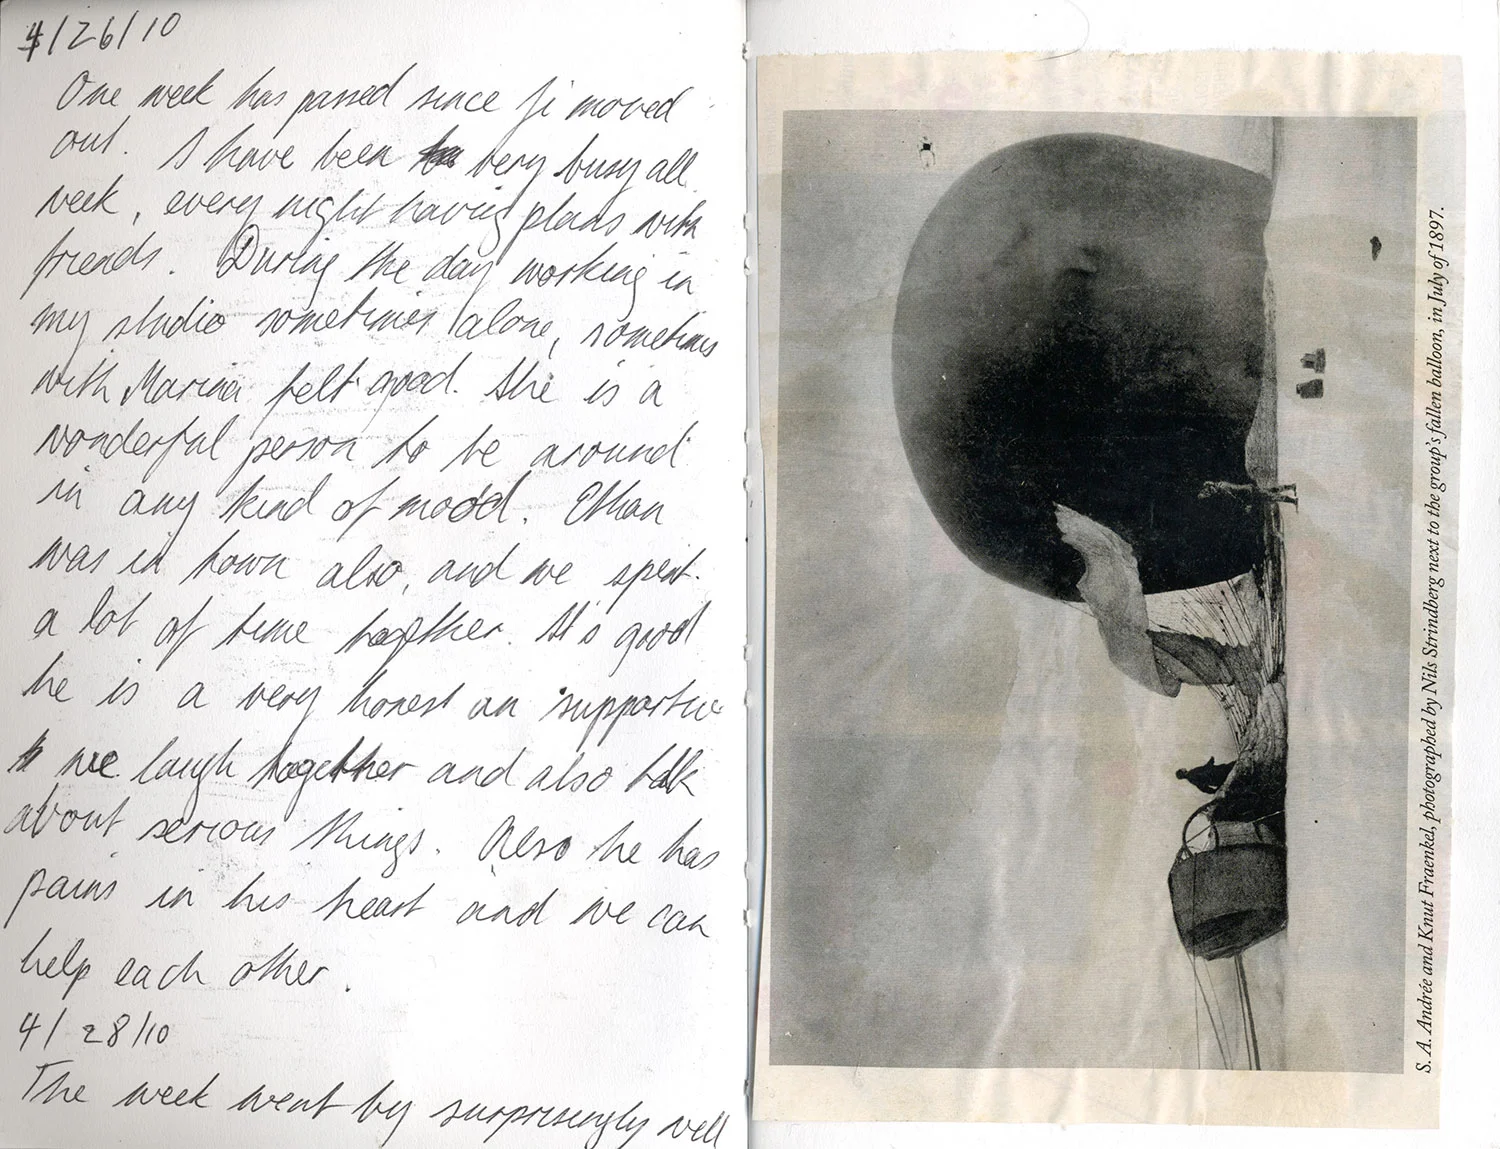 4/26/10
One week has passed since Ji moved
out. I have been very busy all
week, every night having plans with
friends. During the day working in
my studio sometimes alone, sometimes
with Marina felt good. She is a
wonderful person to be around
in any kind of mood. Ethan
was in town also, and we spent
a lot of time together. It's good
he is a very honest an supportive
we laugh together and also talk
about serious things. Also he has
pains in his heart and we can
help each other.
4/28/10
The week went by surprisingly well
S. A. Andrée and Knut Fraenkel, photographed by Nils Strindberg next to the group's fallen balloon, in July of 1897.